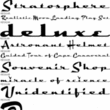 Stratosphere
Realistic Moon Landing Play Set
deluxe
Astronaut Helmet
Guided Tour of Cape Canaveral
Souvenir Shop
miracle of science
Unidentified